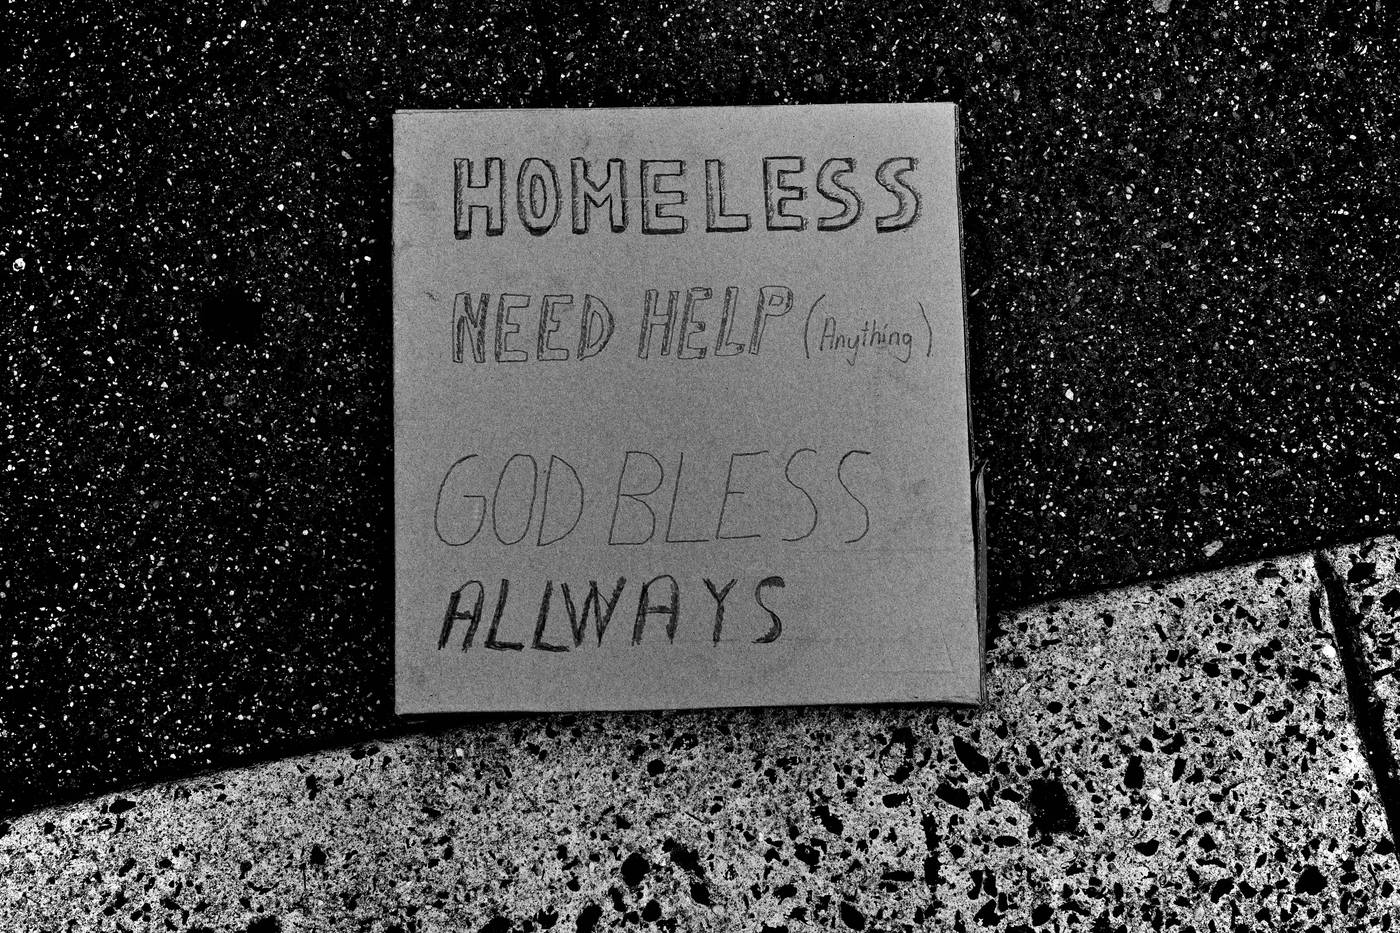 HOMELESS
NEED HELP (Anything)
GOD BLESS
ALLWAYS